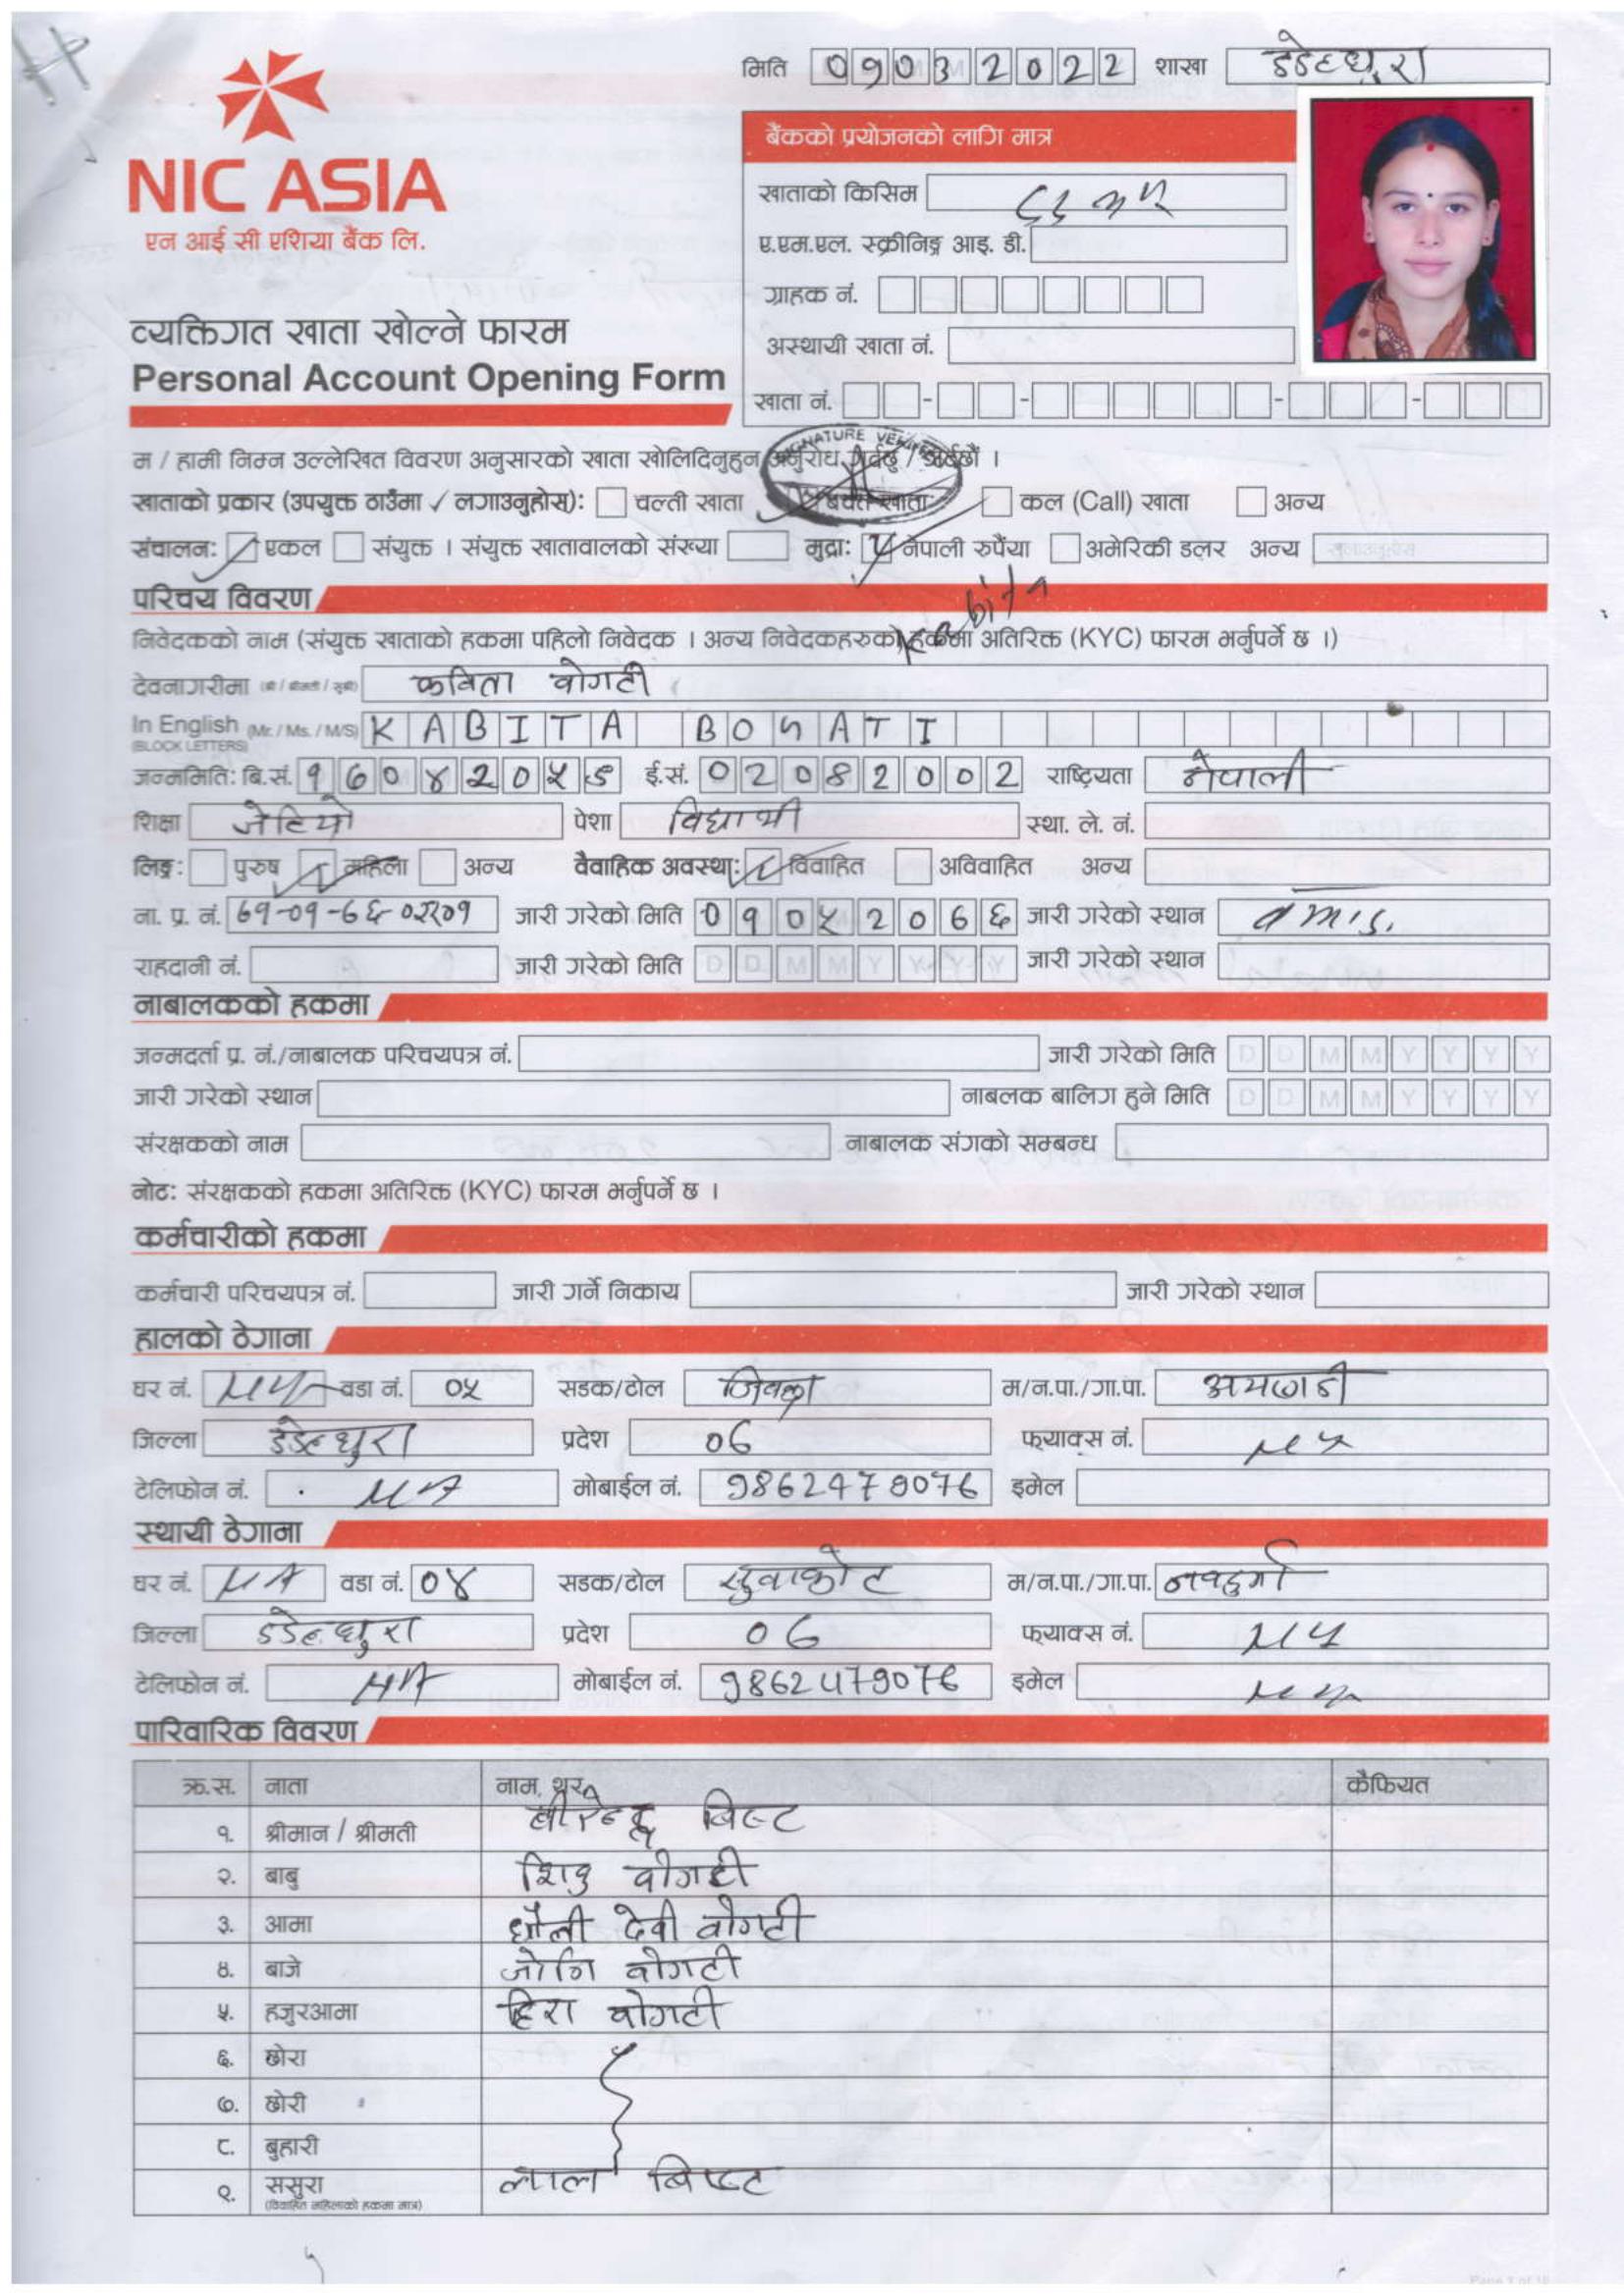 मिति 09032022 शाखा डडेल्धुरा
NIC ASIA
एन आई सी एशिया बैंक लि.
बैंकको प्रयोजनको लागि मात्र
खाताको किसिम
ए.एम.एल. स्क्रीनिङ्ग आइ. डी.
ग्राहक नं.
अस्थायी खाता नं.
खाता नं.
व्यक्तिगत खाता खोल्ने फारम
Personal Account Opening Form
म / हामी निम्न उल्लेखित विवरण अनुसारको खाता खोलिदिनुहुन अनुरोध गर्दछु / गर्दछौं ।
SIGNATURE VERIFIED
खाताको प्रकार (उपयुक्त ठाउँमा ✓ लगाउनुहोस्): चल्ती खाता बचत खाता कल (Call) खाता अन्य
संचालन: एकल संयुक्त । संयुक्त खातावालको संख्या मुद्रा: नेपाली रुपैंया अमेरिकी डलर अन्य खुलाउनुहोस
परिचय विवरण
Kabita
निवेदकको नाम (संयुक्त खाताको हकमा पहिलो निवेदक । अन्य निवेदकहरुको हकमा अतिरिक्त (KYC) फारम भर्नुपर्ने छ ।)
देवनागरीमा (श्री / श्रीमती / सुश्री) कविता वोगटी
In English (Mr. / Ms. / M/S) KABITA BOGATI
(BLOCK LETTERS)
जन्ममिति: बि.सं. १६०४२०५९ ई.सं. 02082002 राष्ट्रियता नेपाली
शिक्षा पेशा विद्यार्थी स्था. ले. नं.
लिङ्ग: पुरुष महिला अन्य वैवाहिक अवस्था: विवाहित अविवाहित अन्य
ना. प्र. नं. जारी गरेको मिति जारी गरेको स्थान
राहदानी नं. जारी गरेको मिति DDMMYYYY जारी गरेको स्थान
नाबालकको हकमा
जन्मदर्ता प्र. नं./नाबालक परिचयपत्र नं. जारी गरेको मिति DDMMYYYY
जारी गरेको स्थान नाबलक बालिग हुने मिति DDMMYYYY
संरक्षकको नाम नाबालक संगको सम्बन्ध
नोट: संरक्षकको हकमा अतिरिक्त (KYC) फारम भर्नुपर्ने छ ।
कर्मचारीको हकमा
कर्मचारी परिचयपत्र नं. जारी गर्ने निकाय जारी गरेको स्थान
हालको ठेगाना
घर नं. NA वडा नं. ०५ सडक/टोल म/न.पा./गा.पा.
जिल्ला डडेल्धुरा प्रदेश 06 फ्याक्स नं. NA
टेलिफोन नं. NA मोबाईल नं. 9862479076 इमेल
स्थायी ठेगाना
घर नं. NA वडा नं. ०४ सडक/टोल म/न.पा./गा.पा. नवदुर्गा
जिल्ला डडेल्धुरा प्रदेश 06 फ्याक्स नं. NA
टेलिफोन नं. NA मोबाईल नं. 9862479076 इमेल NA
पारिवारिक विवरण
क्र.स. नाता नाम, थर कैफियत
१. श्रीमान / श्रीमती बिष्ट
२. बाबु वोगटी
३. आमा धौली देवी वोगटी
४. बाजे जोगि वोगटी
५. हजुरआमा हिरा वोगटी
६. छोरा
७. छोरी
८. बुहारी
९. ससुरा लाल बिष्ट
(विवाहित महिलाको हकमा मात्र)